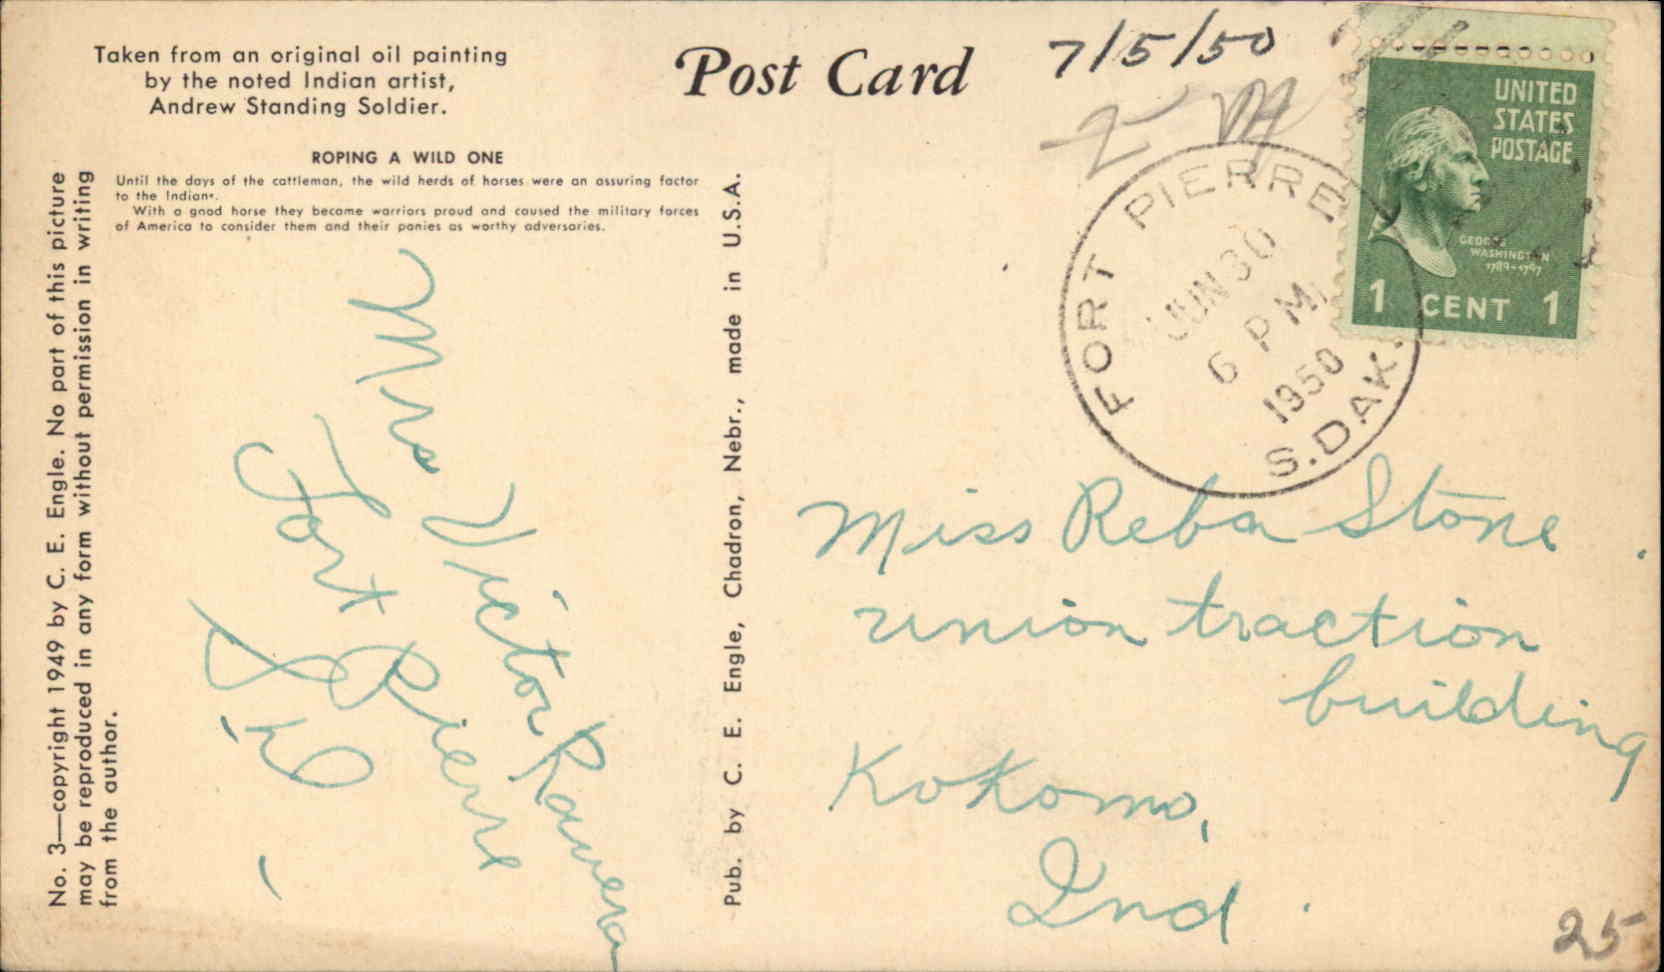 Taken from an original oil painting
by the noted Indian artist,
Andrew Standing Soldier.
ROPING A WILD ONE
Until the days of the cattleman, the wild herds of horses were an assuring factor
to the Indians.
With a good horse they became warriors proud and caused the military forces
of America to consider them and their ponies as worthy adversaries.
No. 3—copyright 1949 by C. E. Engle. No part of this picture
may be reproduced in any form without permission in writing
from the author.
Mrs Victor Ravera
Fort Pierre
S.D
Pub. by C. E. Engle, Chadron, Nebr., made in U.S.A.
Post Card
7/5/50
UNITED
STATES
POSTAGE
GEORGE
WASHINGTON
1789-1797
1 CENT 1
FORT PIERRE
JUN 30
6 PM
1950
S.DAK.
Miss Reba Stone
union traction
building
Kokomo,
Ind.
25